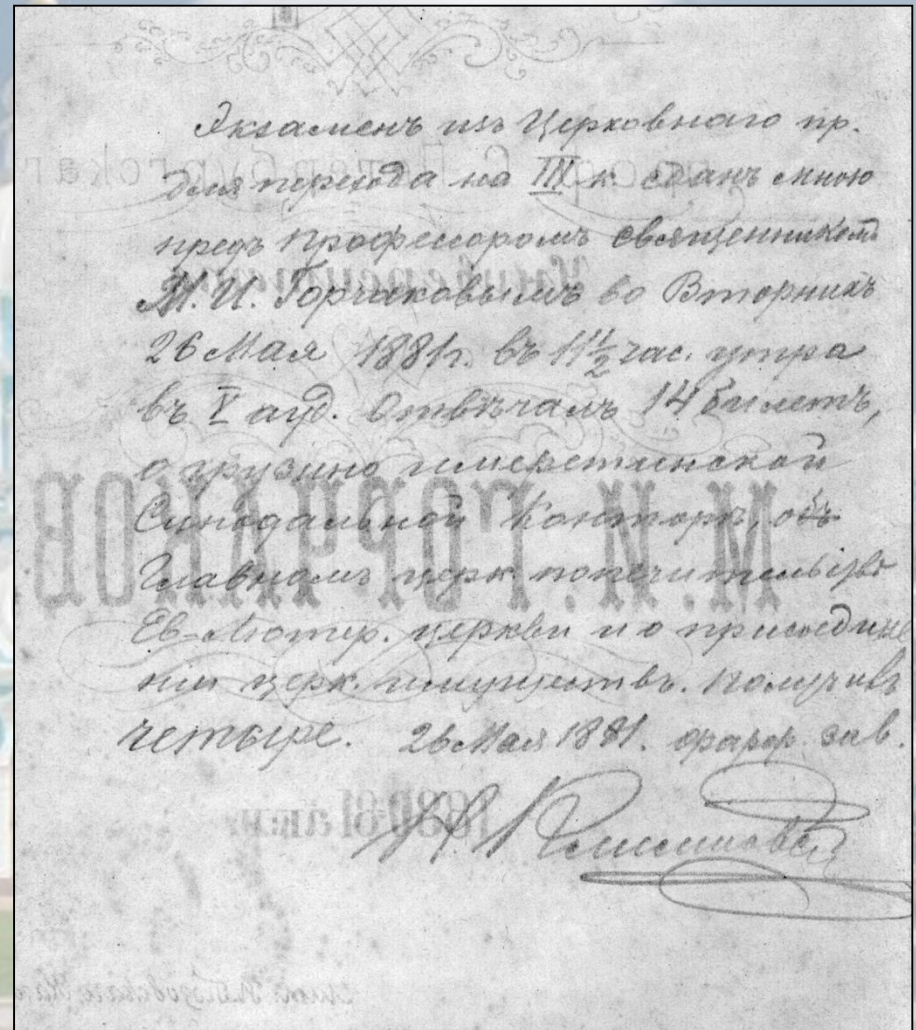 Экзаменъ изъ Церковнаго пр.
для перехода на III к. сданъ мною
предъ профессоромъ священникомъ
М. И. Горчаковымъ во Вторникъ
26 Мая 1881 г. въ 11½ час. утра
въ V ауд. Отвѣчалъ 14 билетъ,
о грузино имеретинской
Синодальной Конторѣ, объ
Главномъ церк. попечительствѣ
Ев-Лютер. церкви и о присоедине
нии церк. имуществъ. Получилъ
четыре. 26 Мая 1881. фарф. зав.
М. И. ГОРЧАКОВ
1880-81 ак. г.